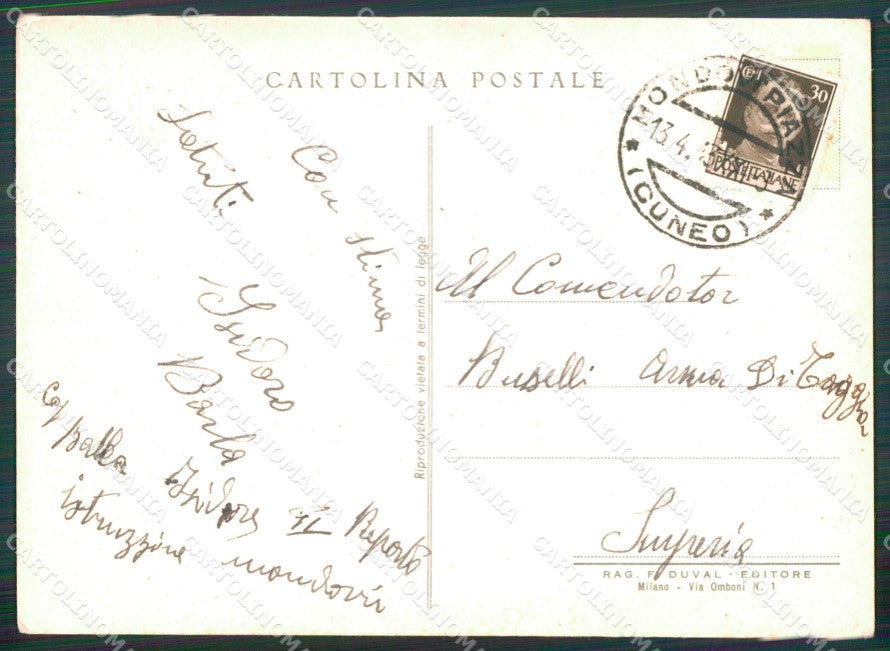 CARTOLINA POSTALE
MONDOVI PIAZZA
13.4.
(CUNEO)
30
POSTE ITALIANE
Saluti
Con stima
Isidoro
Barla
Isidoro II Reparto
istruzzione mondovi
Riproduzione vietata a termini di legge
Al Comendator
Buselli Arma Di Taggia
Imperia
RAG. F. DUVAL - EDITORE
Milano - Via Omboni N. 1
CARTOLINOMANIA